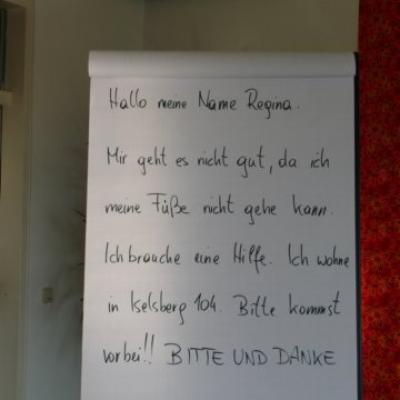 Hallo meine Name Regina.
Mir geht es nicht gut, da ich
meine Füße nicht gehe kann.
Ich brauche eine Hilfe. Ich wohne
in Iselsberg 104. Bitte kommst
vorbei!! BITTE UND DANKE